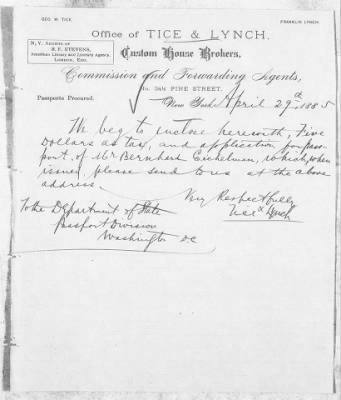 GEO. W. TICE
FRANKLIN LYNCH
Office of TICE & LYNCH,
N. Y. AGENTS OF
B. F. STEVENS,
American Library and Literary Agency,
LONDON, ENG.
Custom House Brokers,
Commission and Forwarding Agents,
No. 34½ PINE STREET.
Passports Procured.
New York April 29th 1885
We beg to enclose herewith, Five
Dollars as tax, and application for pass-
port, of Mr Bernhard, which, when
issued, please send to us at the above
address.
Very Respectfully
Tice & Lynch
To the Department of State
Passport Division
Washington DC